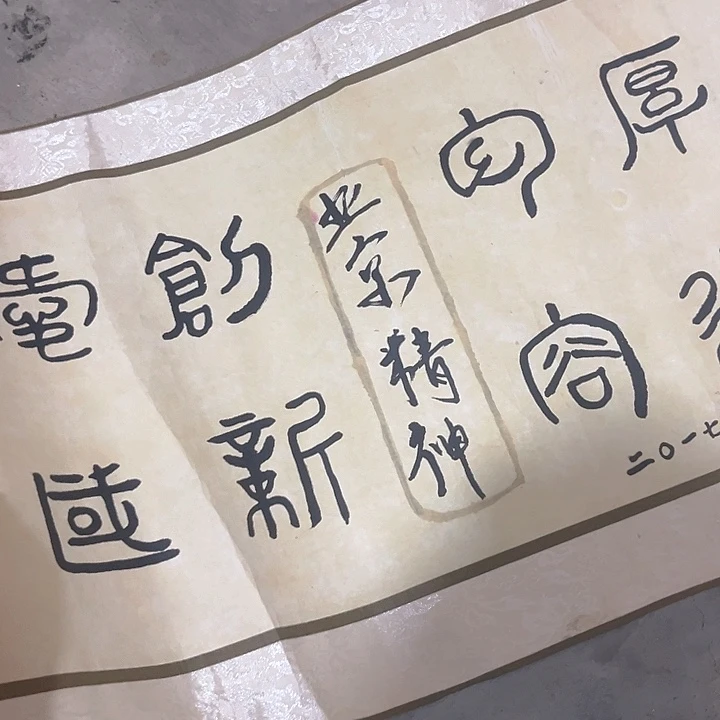 愛國
創新
北京精神
包容
厚
二〇一七